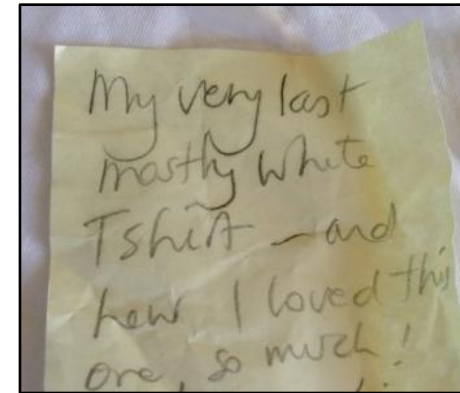 My very last
mostly white
Tshirt - and
how I loved this
one, so much!